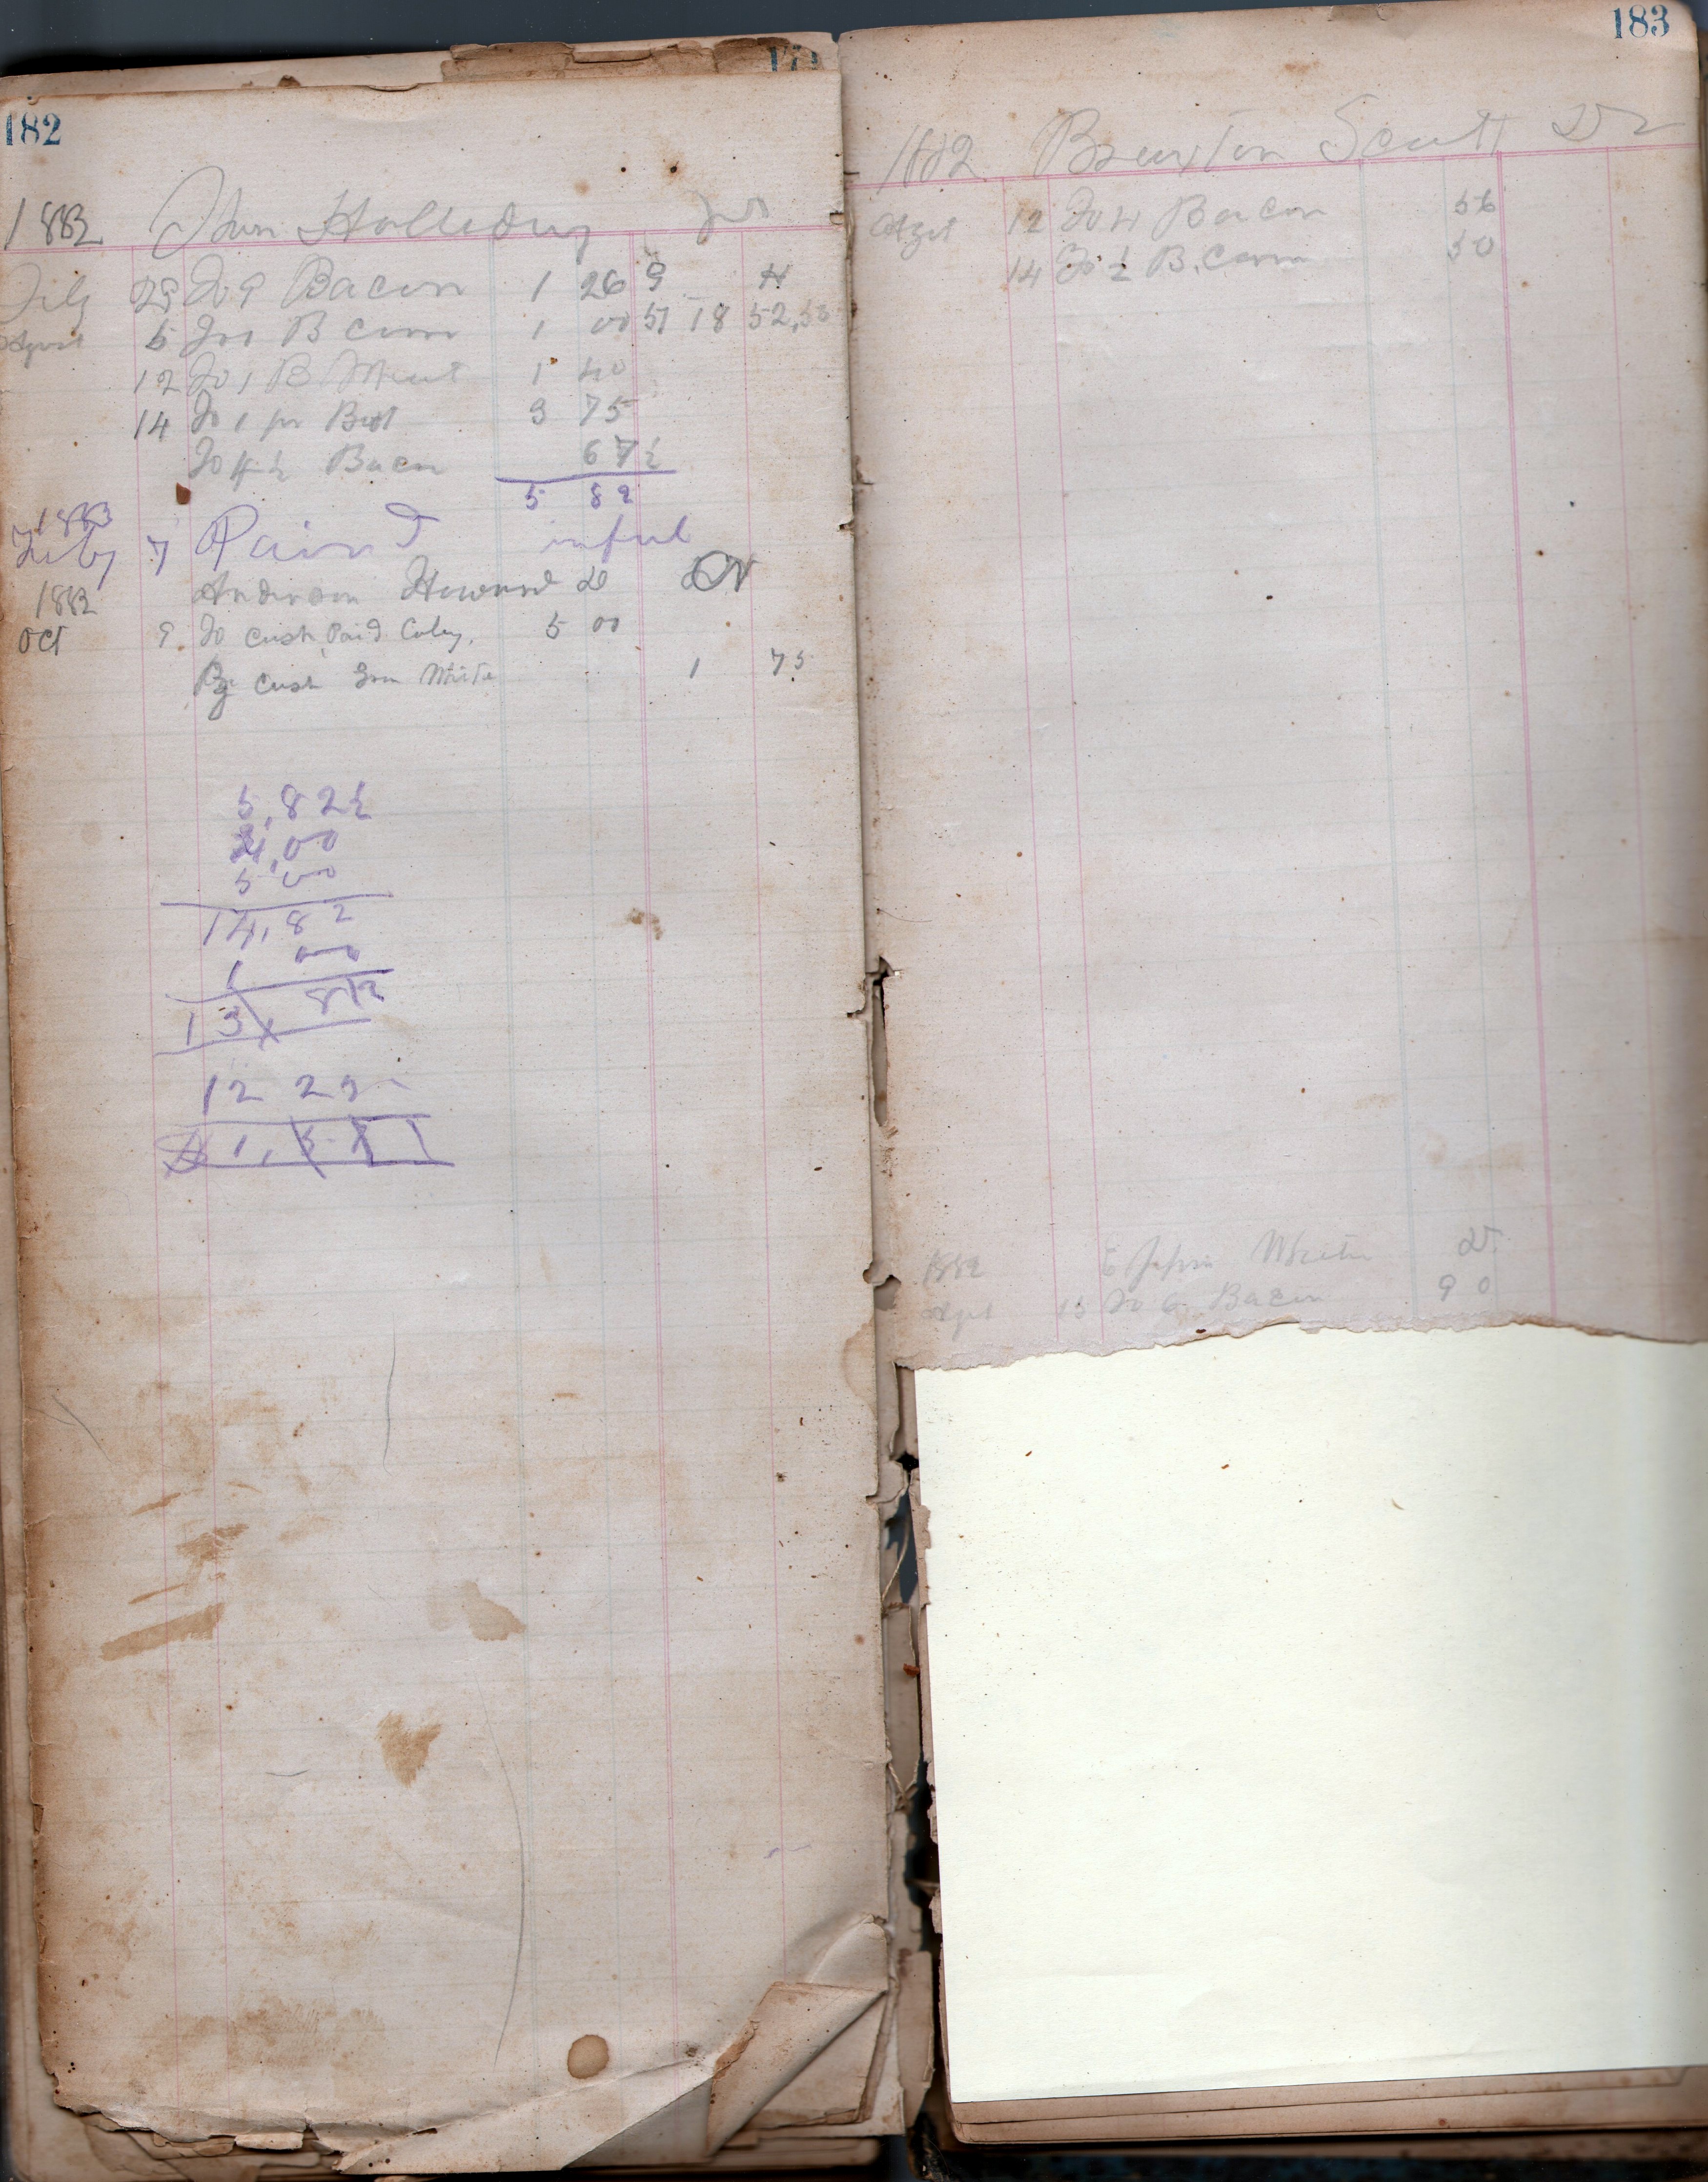 182
1882 John Holleday
July 29 To 9 Bacon 1 26 9 4
August 5 To 1 B Corn 1 00 51 18 52,50
12 To 1 B Meat 1 40
14 To 1 pr Boot 3 75
To 4½ Bacon 67½
5 82
1883
Feby 7 Paid in full
1882 Anderson Howard D Cr
Oct 9 To Cash Paid Coley. 5 00
By Cash from White 1 75
5,82½
4,00
5 00
14,82
1 00
13, 82
12 29
1,
183
1882 Braxton Scott Dr
August 12 To 4 Bacon 56
14 To ½ B. Corn 50
1882 White Dr
August 13 To 6 Bacon 90